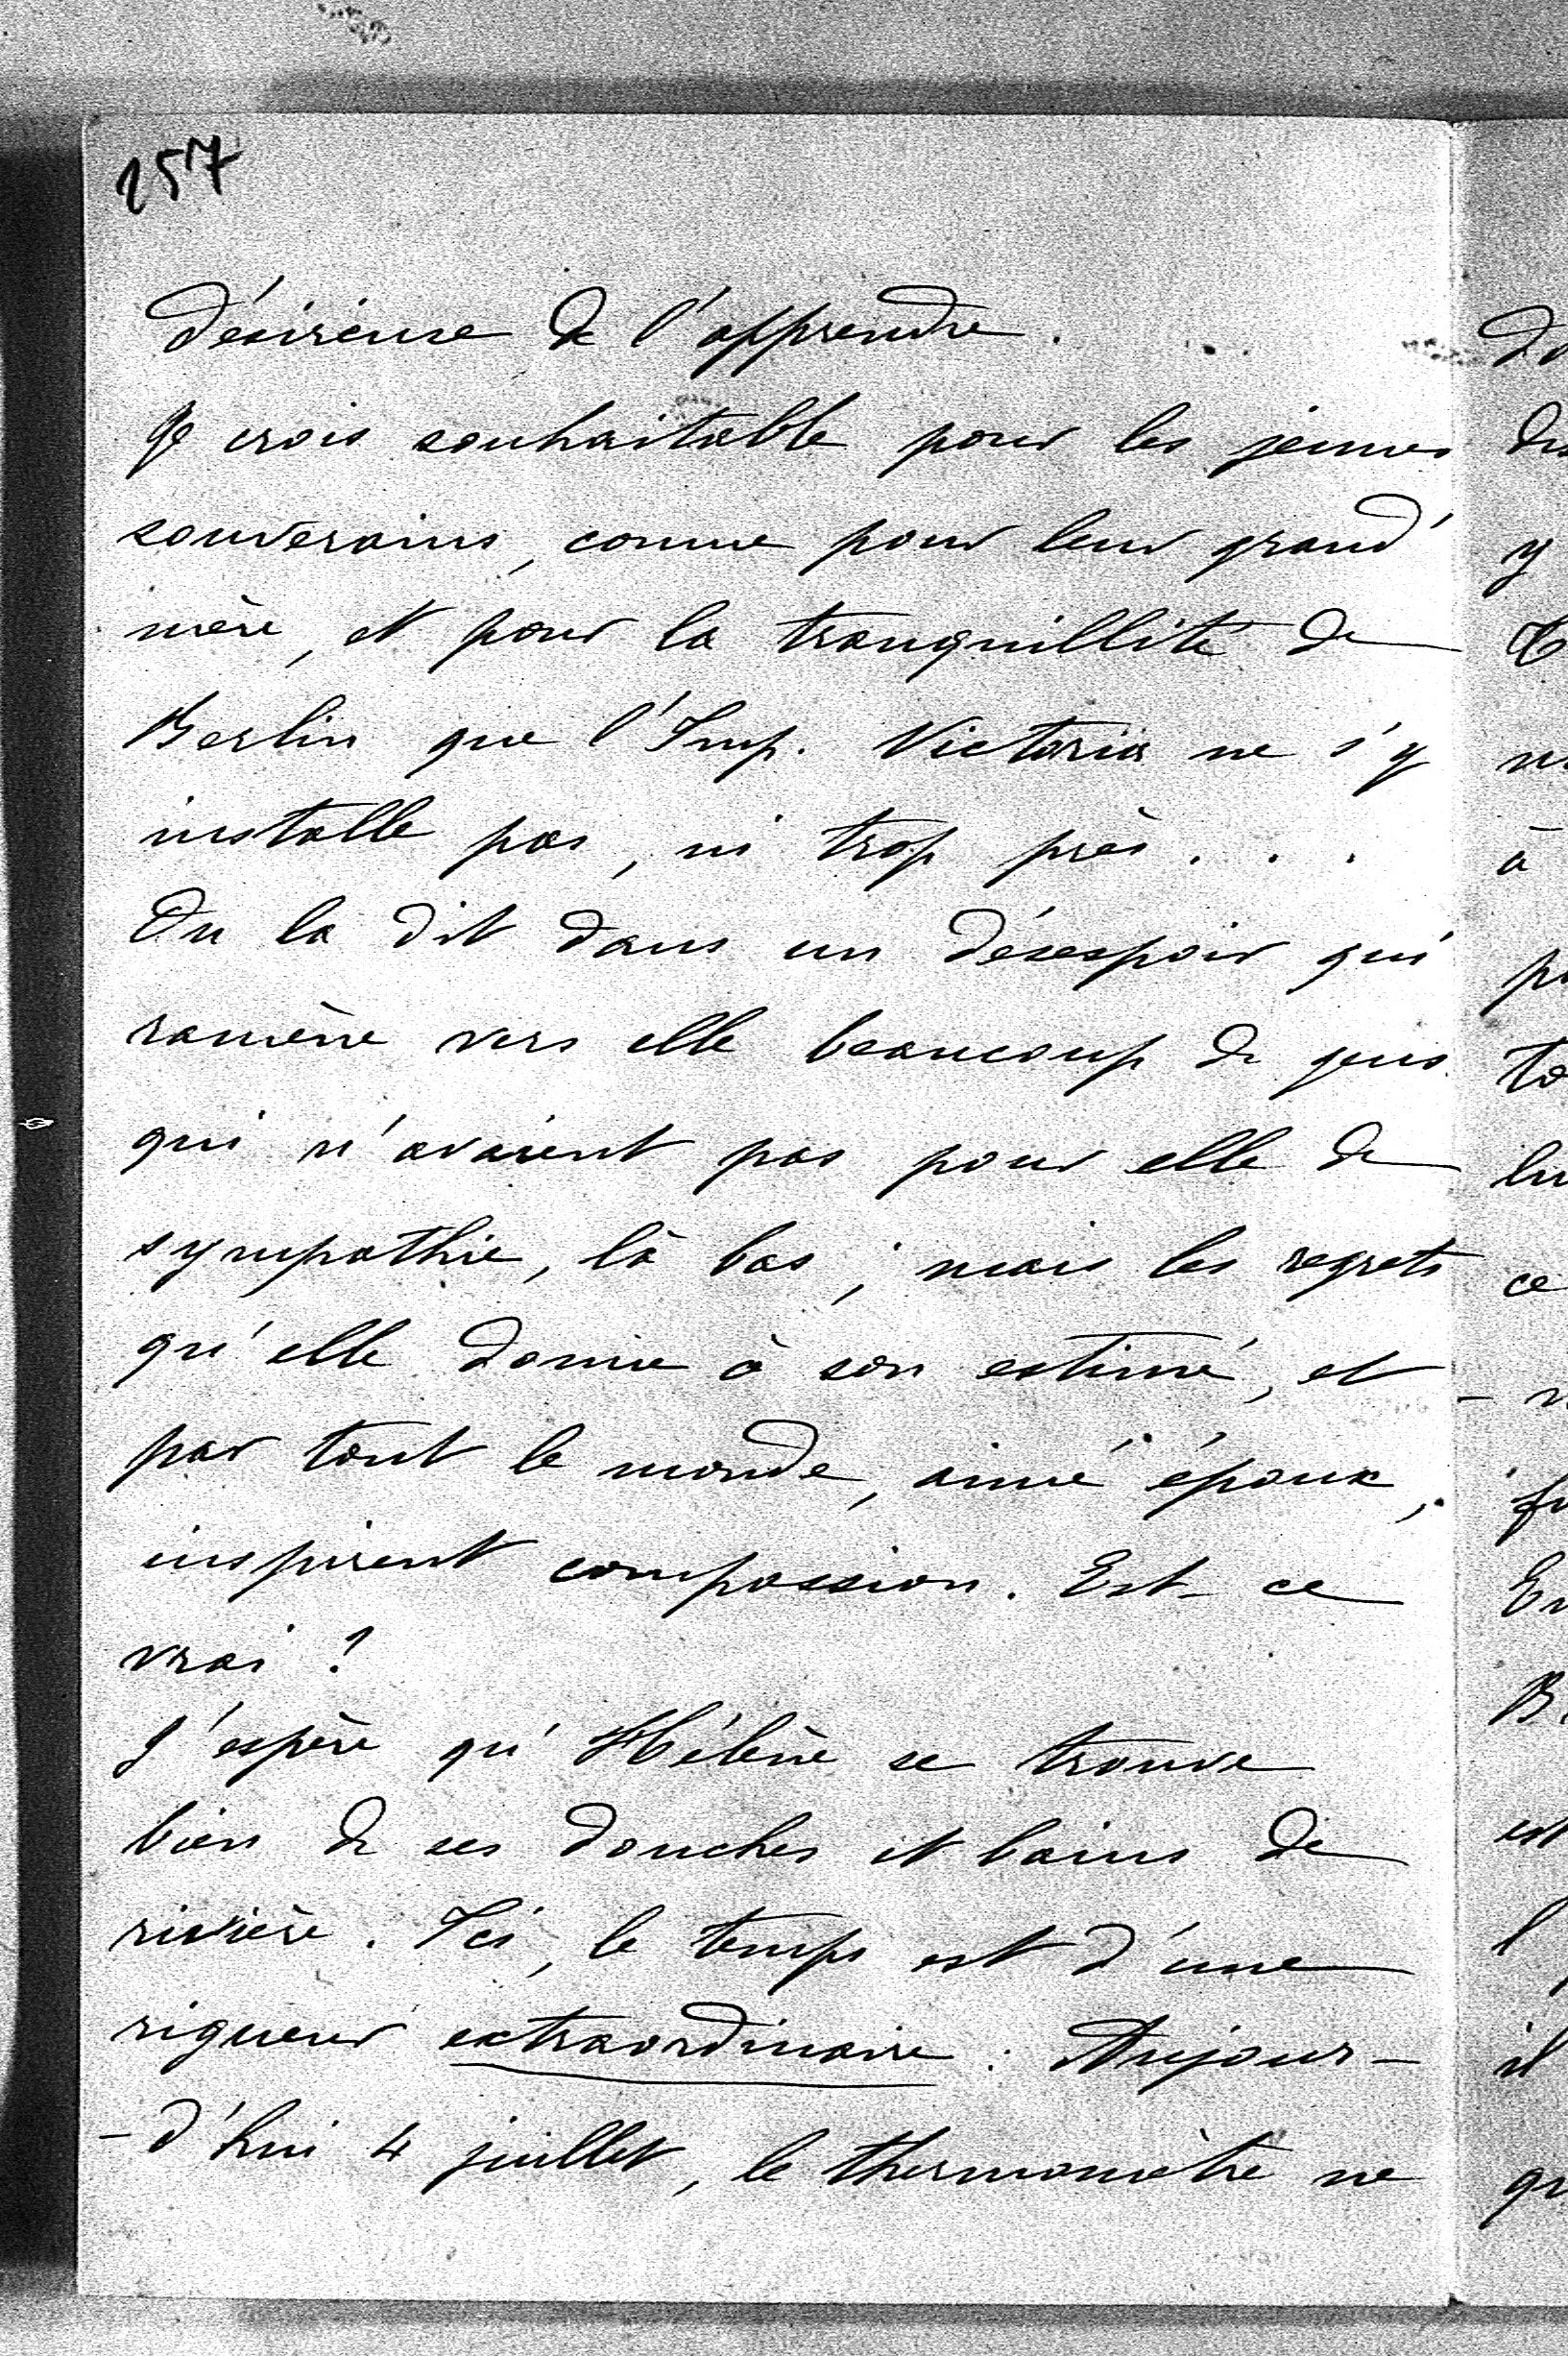 257
désireuse de l'apprendre.
Je crois souhaitable pour les jeunes
souverains, comme pour leur grand'
mère, et pour la tranquillité de
Berlin que l'Imp. Victoria ne s'y
installe pas, ni trop près...
On la dit dans un désespoir qui
ramène vers elle beaucoup de gens
qui n'avaient pas pour elle de
sympathie, là bas; mais les regrets
qu'elle donne à son estimé, et
par tout le monde, aimé époux,
inspirent compassion. Est-ce
vrai?
J'espère qu'Hélène se trouve
bien de ses douches et bains de
rivière. Ici, le temps est d'une
rigueur extraordinaire: Aujour-
-d'hui 4 juillet, le thermomètre ne